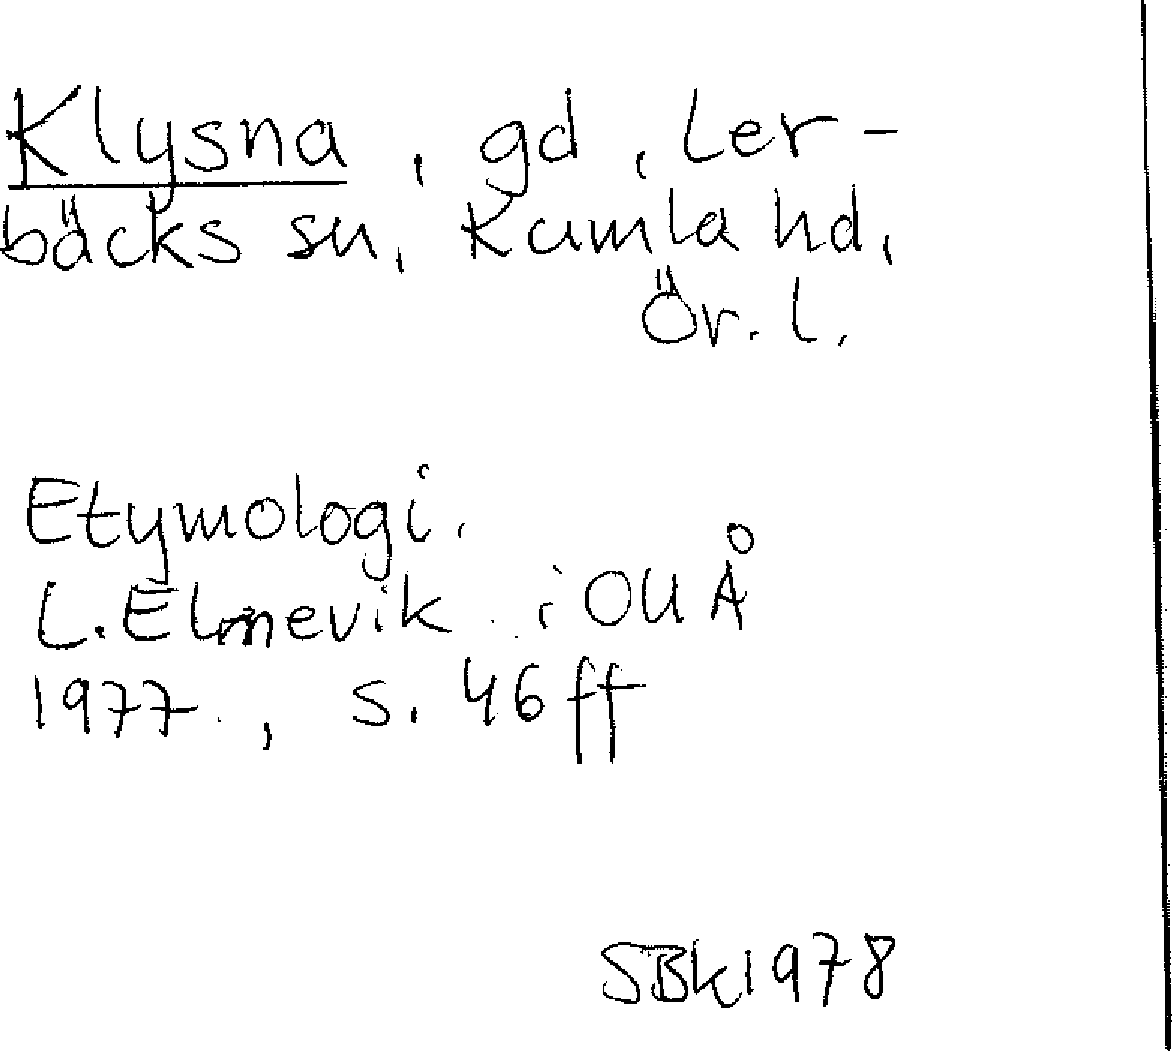 Klysna, gd, Ler-
bäcks sn, Kumla hd,
Ör. l.
Etymologi.
L. Elmevik i OUÅ
1977, s. 46 ff
SBk 1978